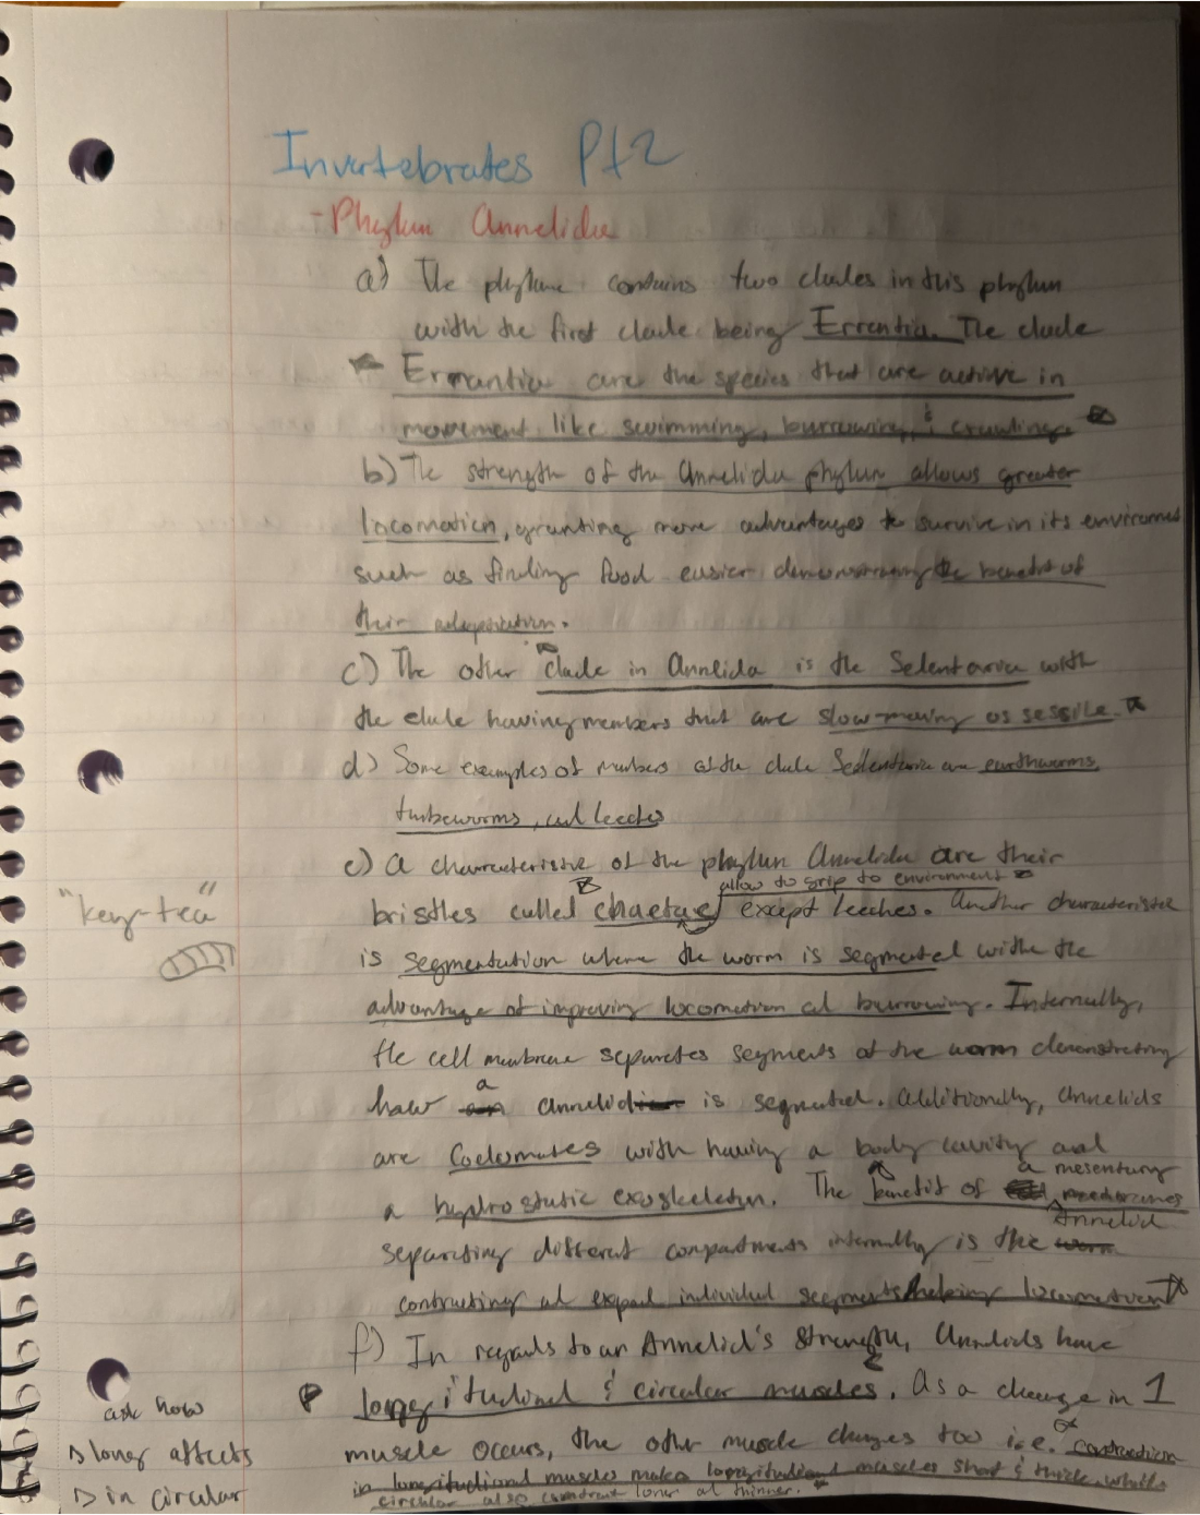 Invertebrates Pt2
- Phylum Annelida
a) The phylum contains two clades in this phylum
with the first clade being Errantia. The clade
Errantia are the species that are active in
movement like swimming, burrowing, & crawling.
b) The strength of the Annelida phylum allows greater
locomotion, granting more advantages to survive in its environment
such as finding food easier demonstrating the benefit of
their adaptation.
c) The other clade in Annelida is the Sedentaria with
the clade having members that are slow-moving or sessile.
d) Some examples of members of the clade Sedentaria are earthworms,
tubeworms, and leeches
e) A characteristic of the phylum Annelida are their
allow to grip to environment
"key-tea"
bristles called chaetae except leeches. Another characteristic
is segmentation where the worm is segmented with the
advantage of improving locomotion and burrowing. Internally,
the cell membrane separates segments of the worm demonstrating
how a annelid is segmented. Additionally, annelids
are Coelomates with having a body cavity and
a hydrostatic exoskeleton. The benefit of a mesentary
separating different compartments internally is the Annelid
contracting and expand individual segments helping locomotion
f) In regards to an Annelid's strength, Annelids have
longitudinal & circular muscles. As a change in 1
muscle occurs, the other muscle changes too i.e. contraction
in longitudional muscles makes longitudional muscles short & thick while
circular also constrict longer and thinner.
ask how
longer affects
in circular